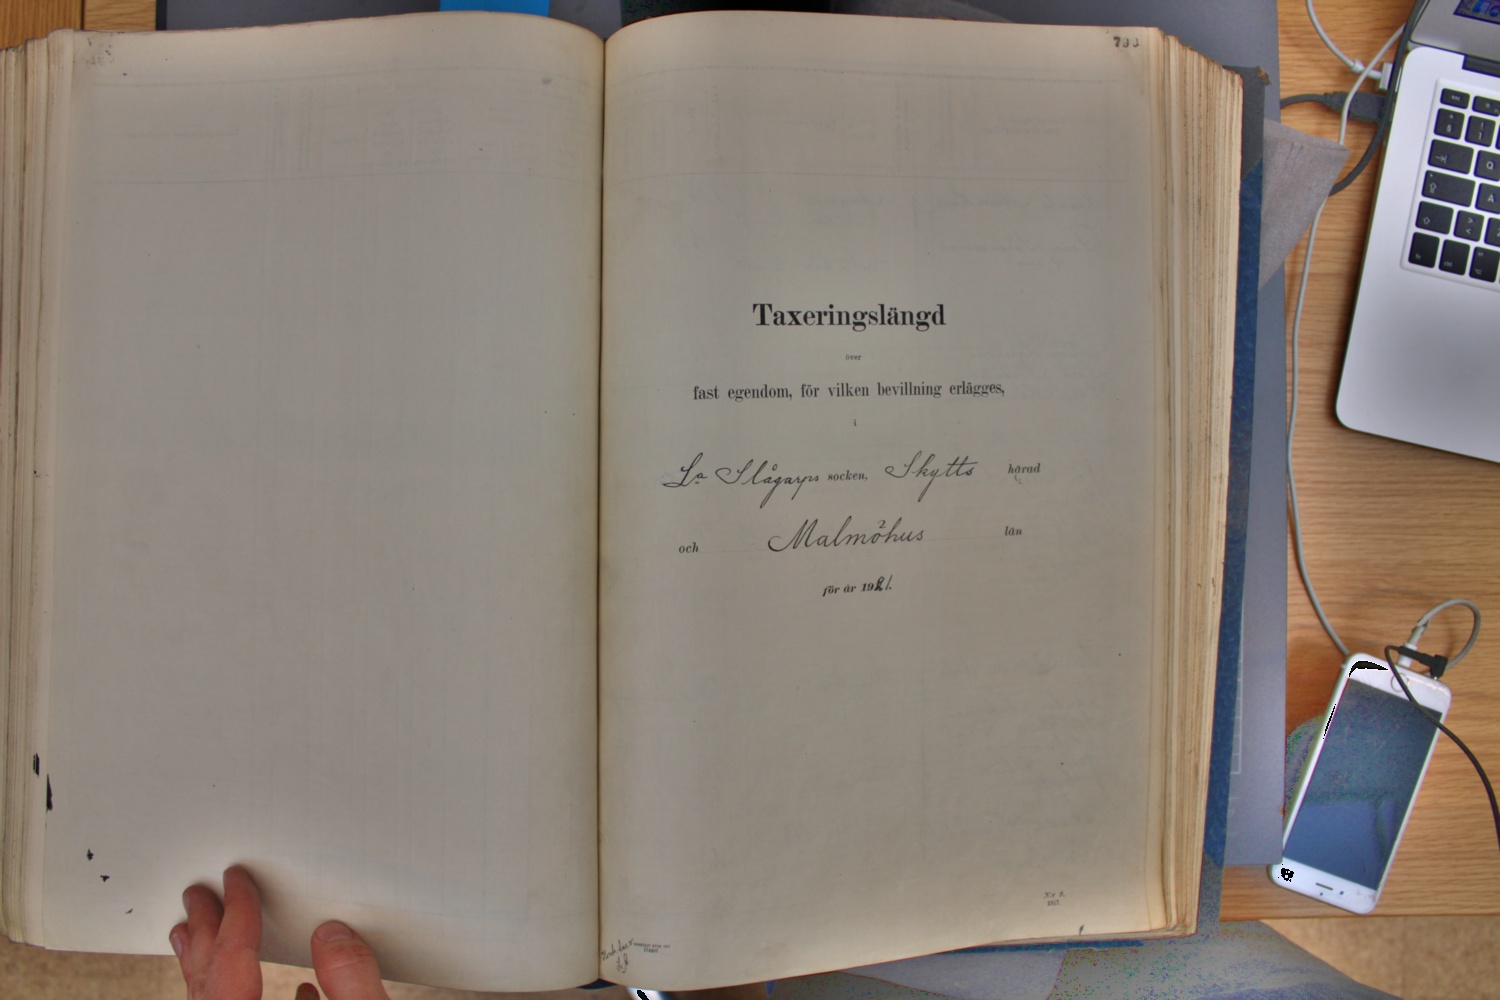 733
Taxeringslängd
över
fast egendom, för vilken bevillning erlägges,
i
La Slågarps socken, Skytts härad
och Malmöhus län
för år 1921.